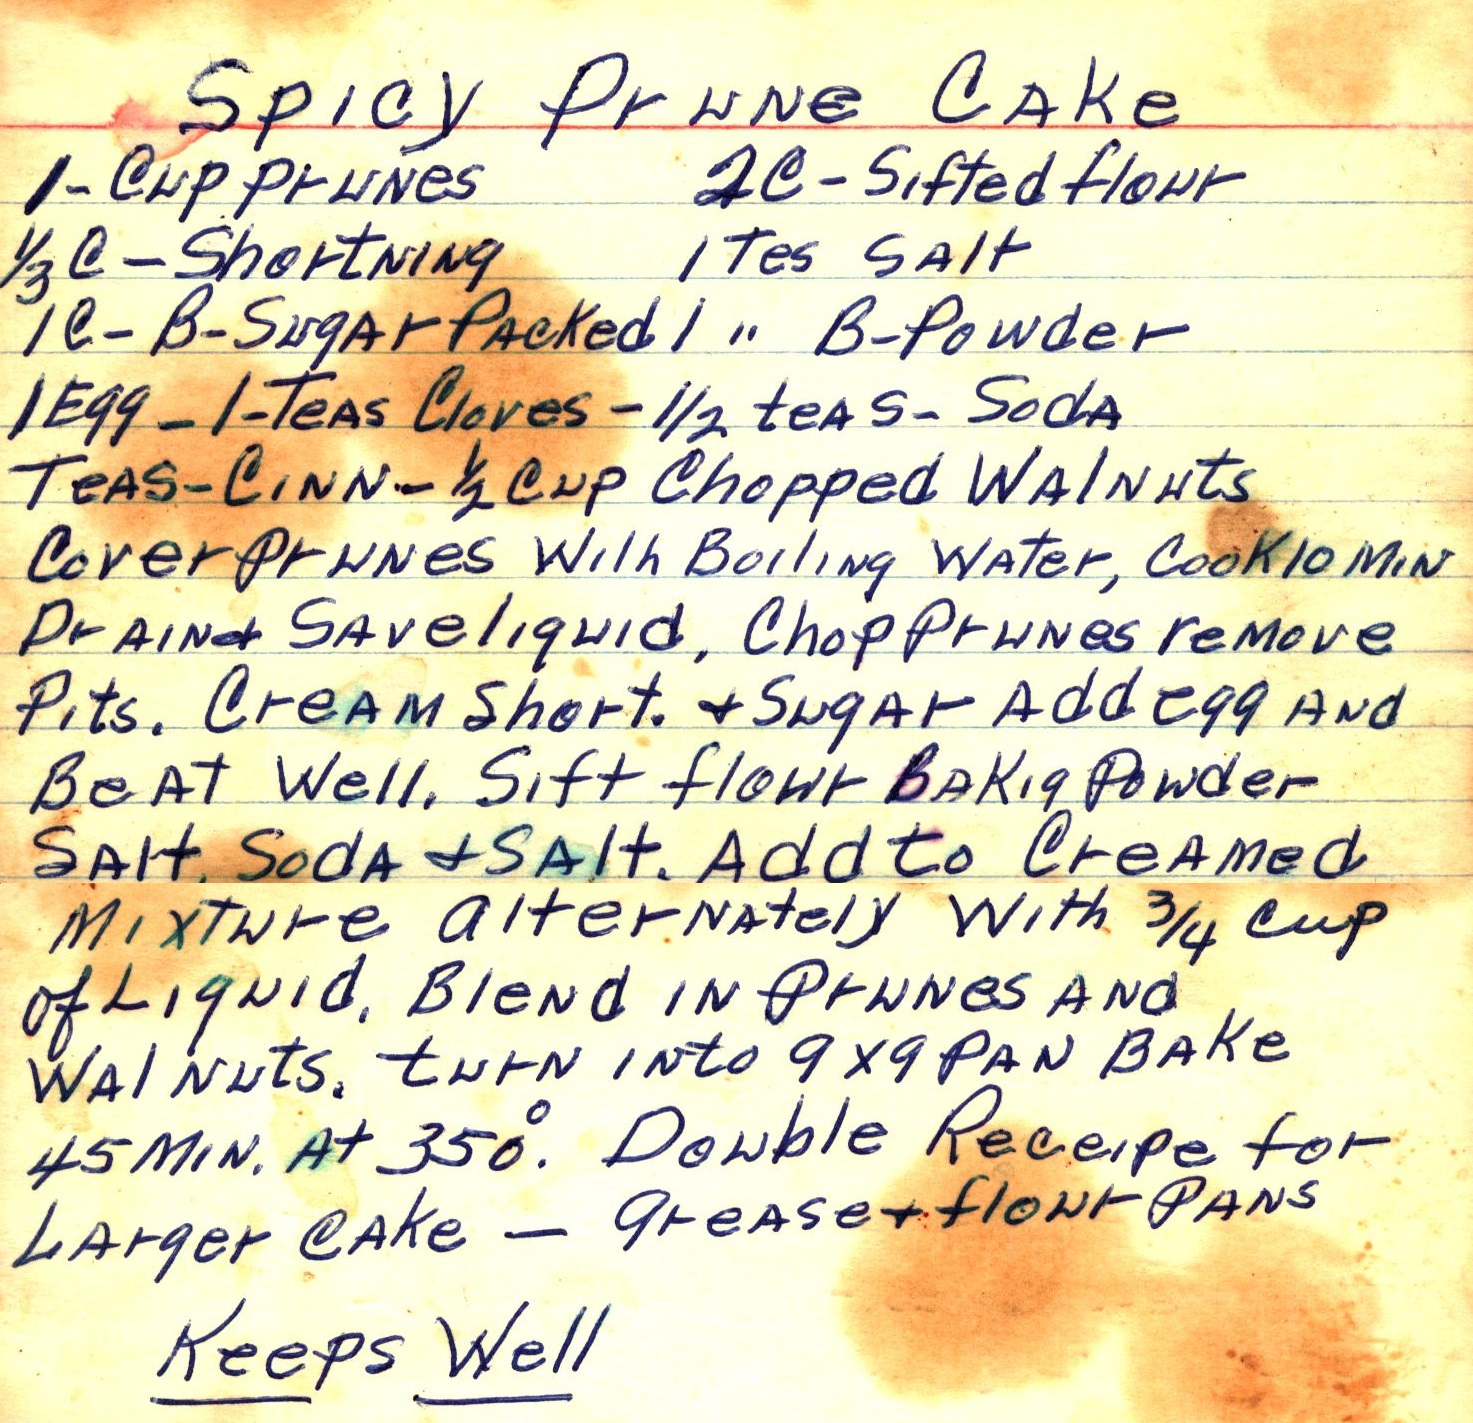 Spicy Prune Cake
1-Cup prunes 2C-Sifted flour
1/3 C-Shortning 1 Tes Salt
1C-B-Sugar Packed 1 " B-Powder
1 Egg-1-Teas Cloves-1/2 teas-Soda
Teas-Cinn-1/2 Cup Chopped Walnuts
Cover Prunes With Boiling Water, Cook 10 Min
Drain & Save liquid, Chop Prunes remove
Pits. Cream Short. & Sugar Add egg and
Beat Well. Sift flour Bakig Powder
Salt, Soda & Salt. Add to Creamed
Mixture alternately With 3/4 cup
of Liquid. Blend in Prunes and
Walnuts. turn into 9x9 Pan Bake
45 Min. At 350°. Double Receipe for
Larger Cake - grease & flour Pans
Keeps Well